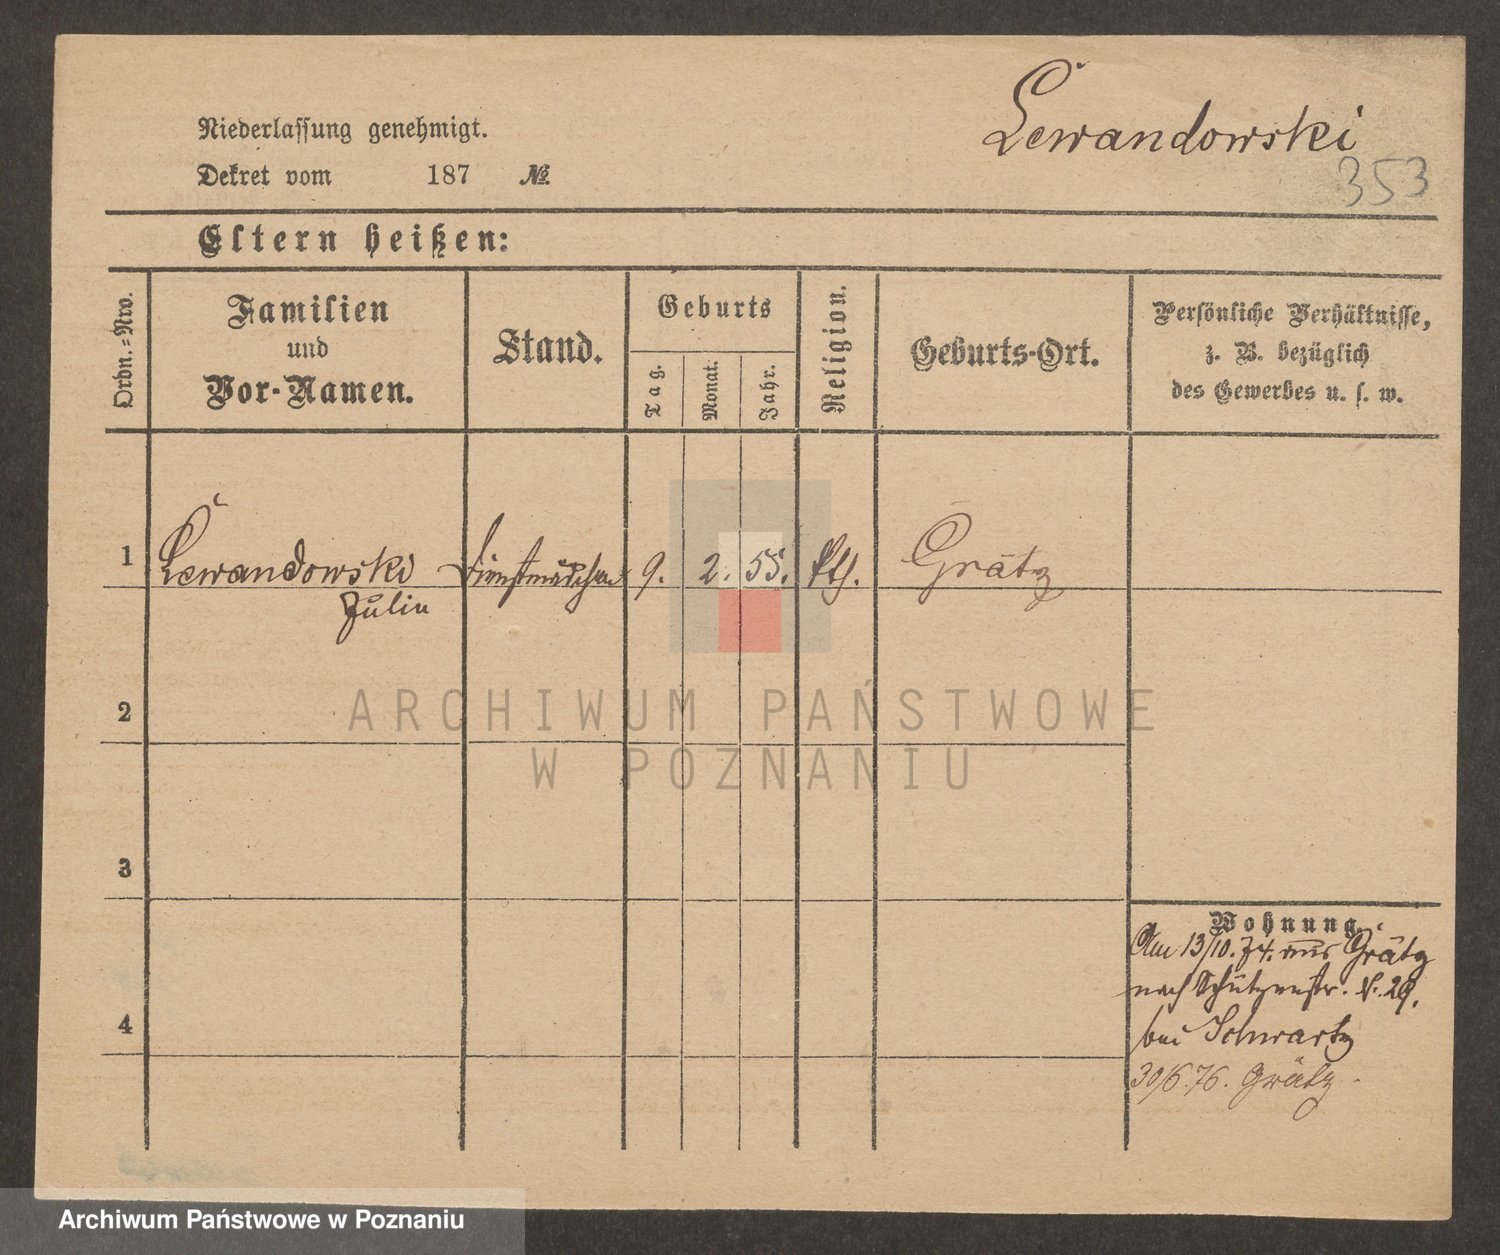 Lewandowski
353
Niederlassung genehmigt.
Dekret vom 187 №
Eltern heißen:
Ordn.=Nro.
Familien
und
Vor-Namen.
Stand.
Geburts
Tag.
Monat.
Jahr.
Religion.
Geburts-Ort.
Persönliche Verhältnisse,
z. B. bezüglich
des Gewerbes u. s. w.
1 Lewandowski Dienstmädchen 9. 2. 55. kth. Grätz
Julie
2
3
4
Wohnung.
Am 13/10. 74. aus Grätz
nach Schützenstr. N. 29.
bei Schwartz
30/6.76. Grätz.
ARCHIWUM PAŃSTWOWE
W POZNANIU
Archiwum Państwowe w Poznaniu